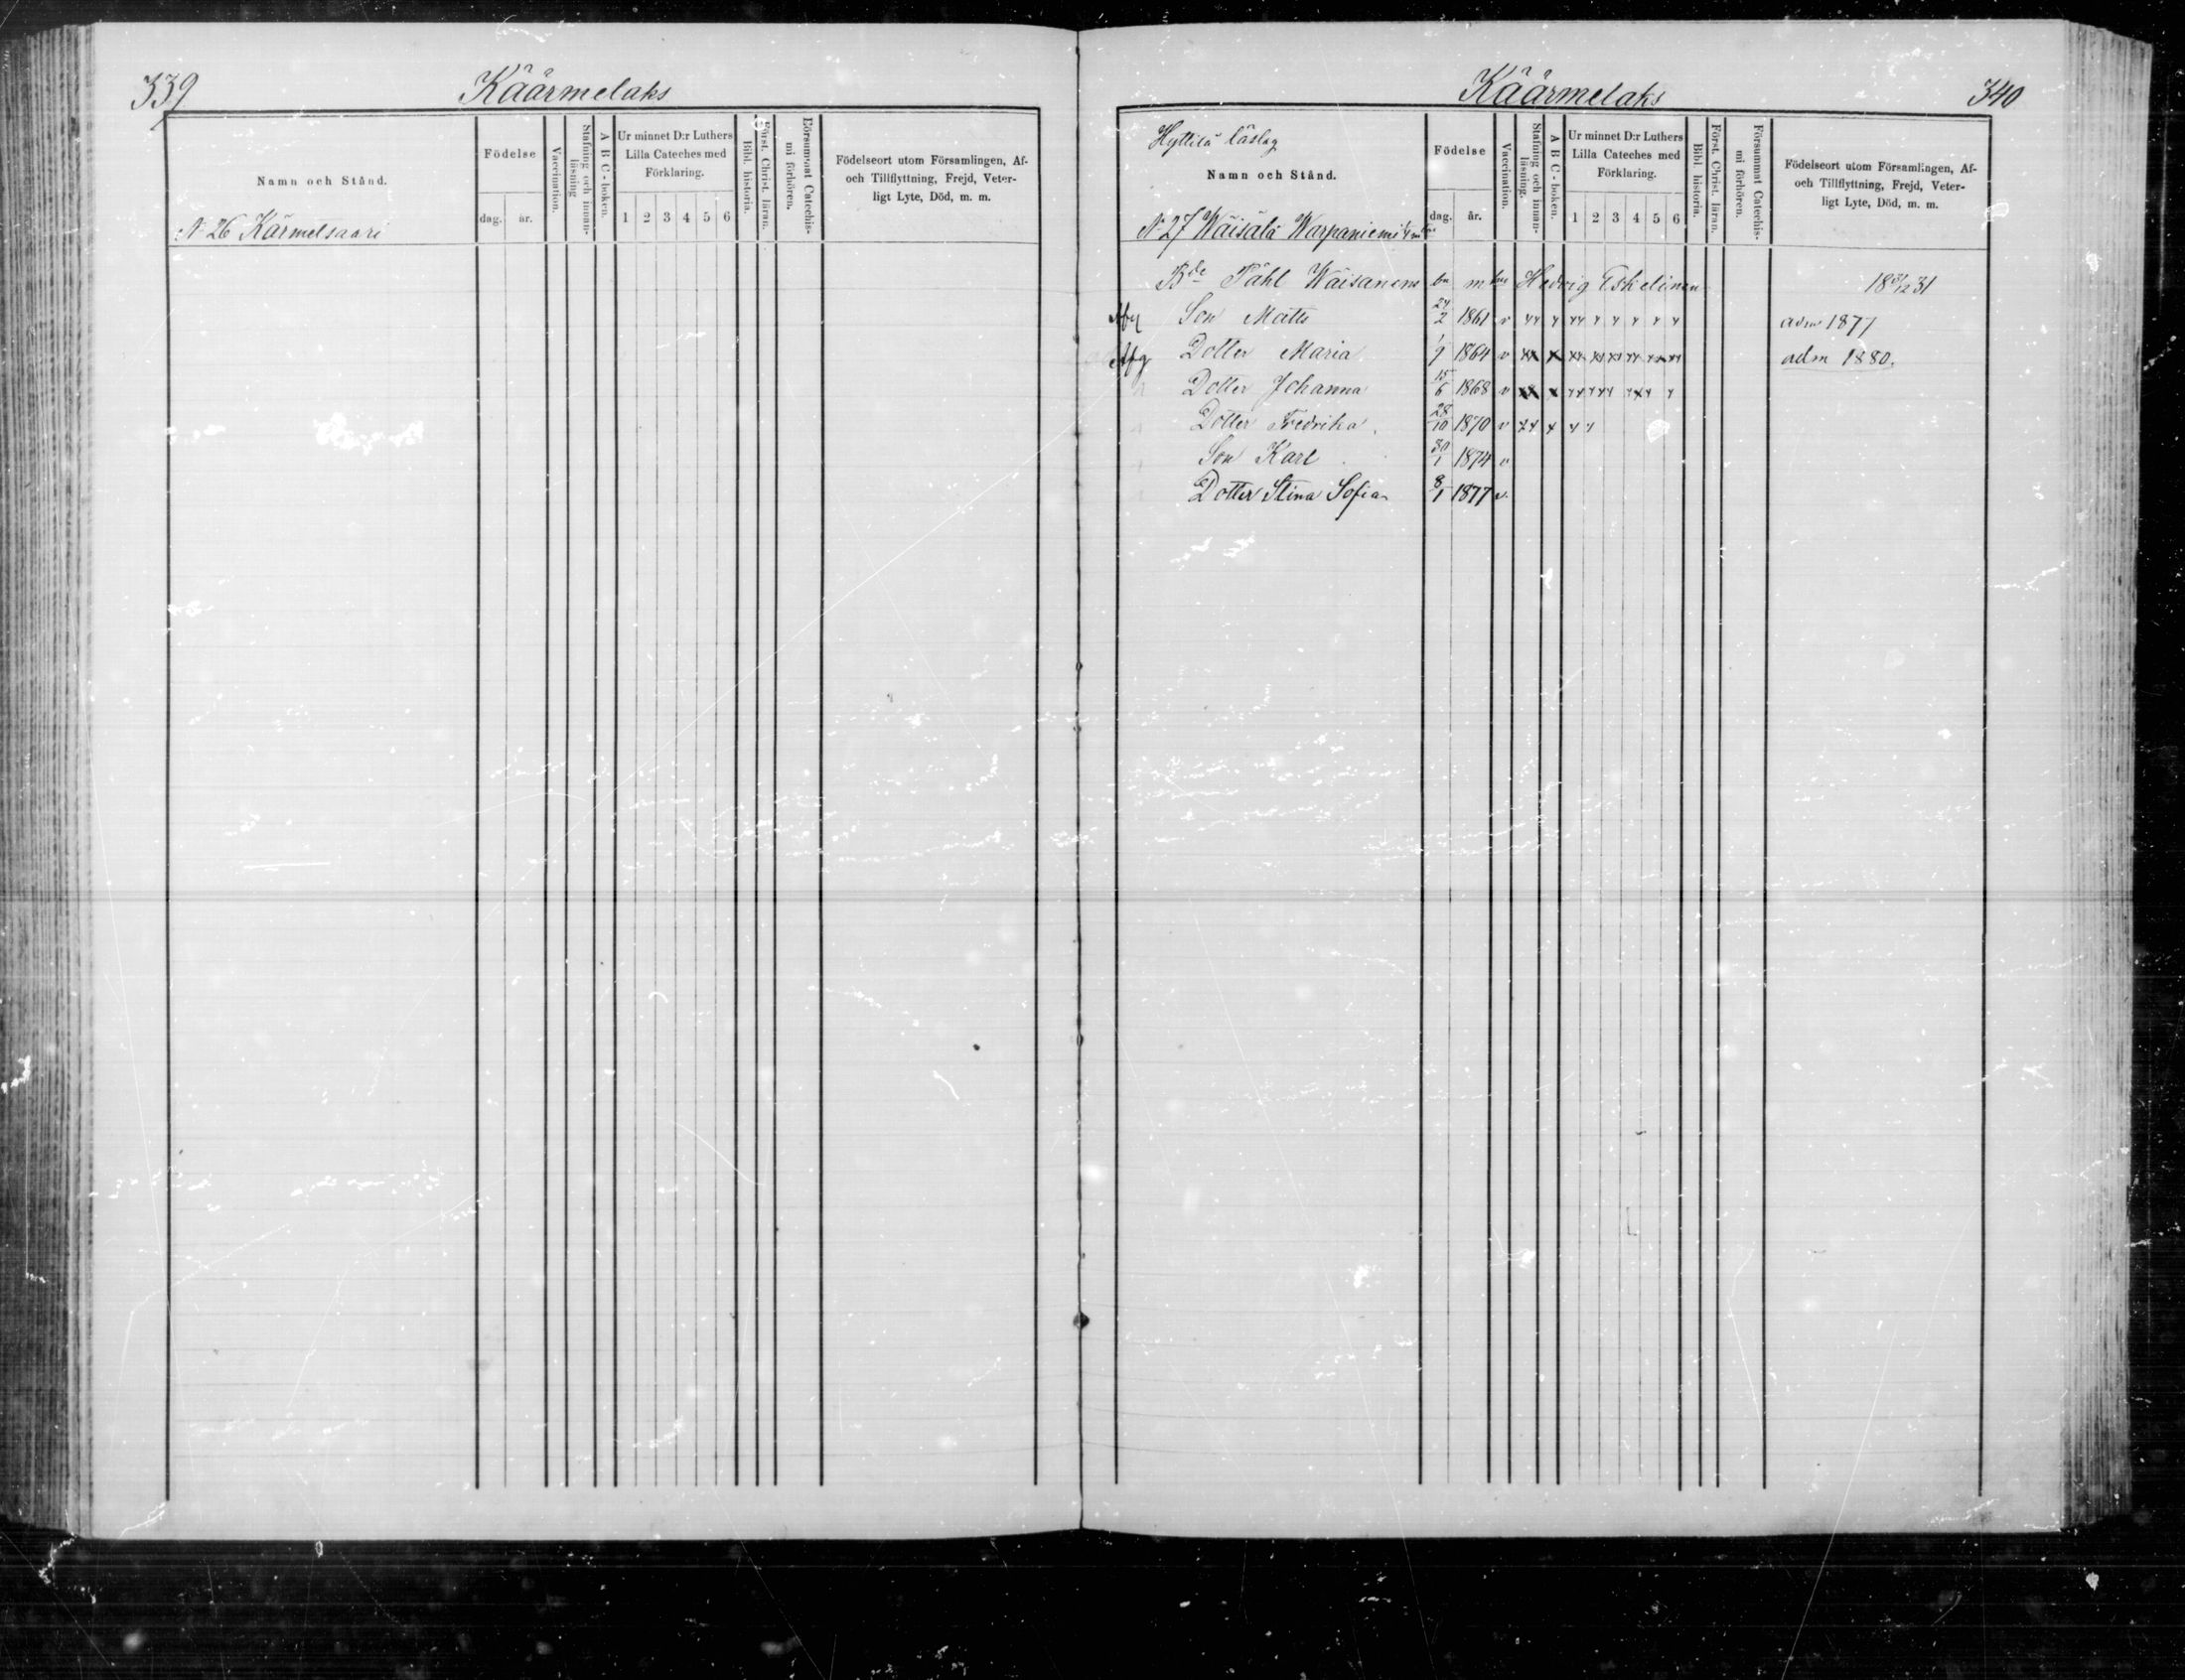 339
Käärmelaks
Namn och Stånd.
Födelse
dag. år.
Vaccination.
Stafning och innan-
läsning
A B C-boken.
Ur minnet D:r Luthers
Lilla Cateches med
Förklaring.
1 2 3 4 5 6
Bibl. historia.
Först. Christ. läran.
Försummat Catechis-
mi förhören.
Födelseort utom Församlingen, Af-
och Tillflyttning, Frejd, Veter-
ligt Lyte, Död, m. m.
N 26 Kärmelsaari
Käärmelaks
340
Hyttilä läslag
Namn och Stånd.
Födelse
dag. år.
Vaccination.
Stafning och innan-
läsning.
A B C-boken.
Ur minnet D:r Luthers
Lilla Cateches med
Förklaring.
1 2 3 4 5 6
Bibl. historia.
Först. Christ. läran.
Försummat Catechis-
mi förhören.
Födelseort utom Församlingen, Af-
och Tillflyttning, Frejd, Veter-
ligt Lyte, Död, m. m.
N 27 Wäisälä Warpaniemi
Bde Påhl Wäisanens Hedvig Eskelinen 31
Son Matts 24/2 1861 v adm 1877
Afg Dotter Maria 1/9 1864 v adm 1880.
Dotter Johanna 15/6 1868 v
Dotter Fredrika 28/10 1870 v
Son Karl 30/1 1874 v
Dotter Stina Sofia 8/1 1877 v.